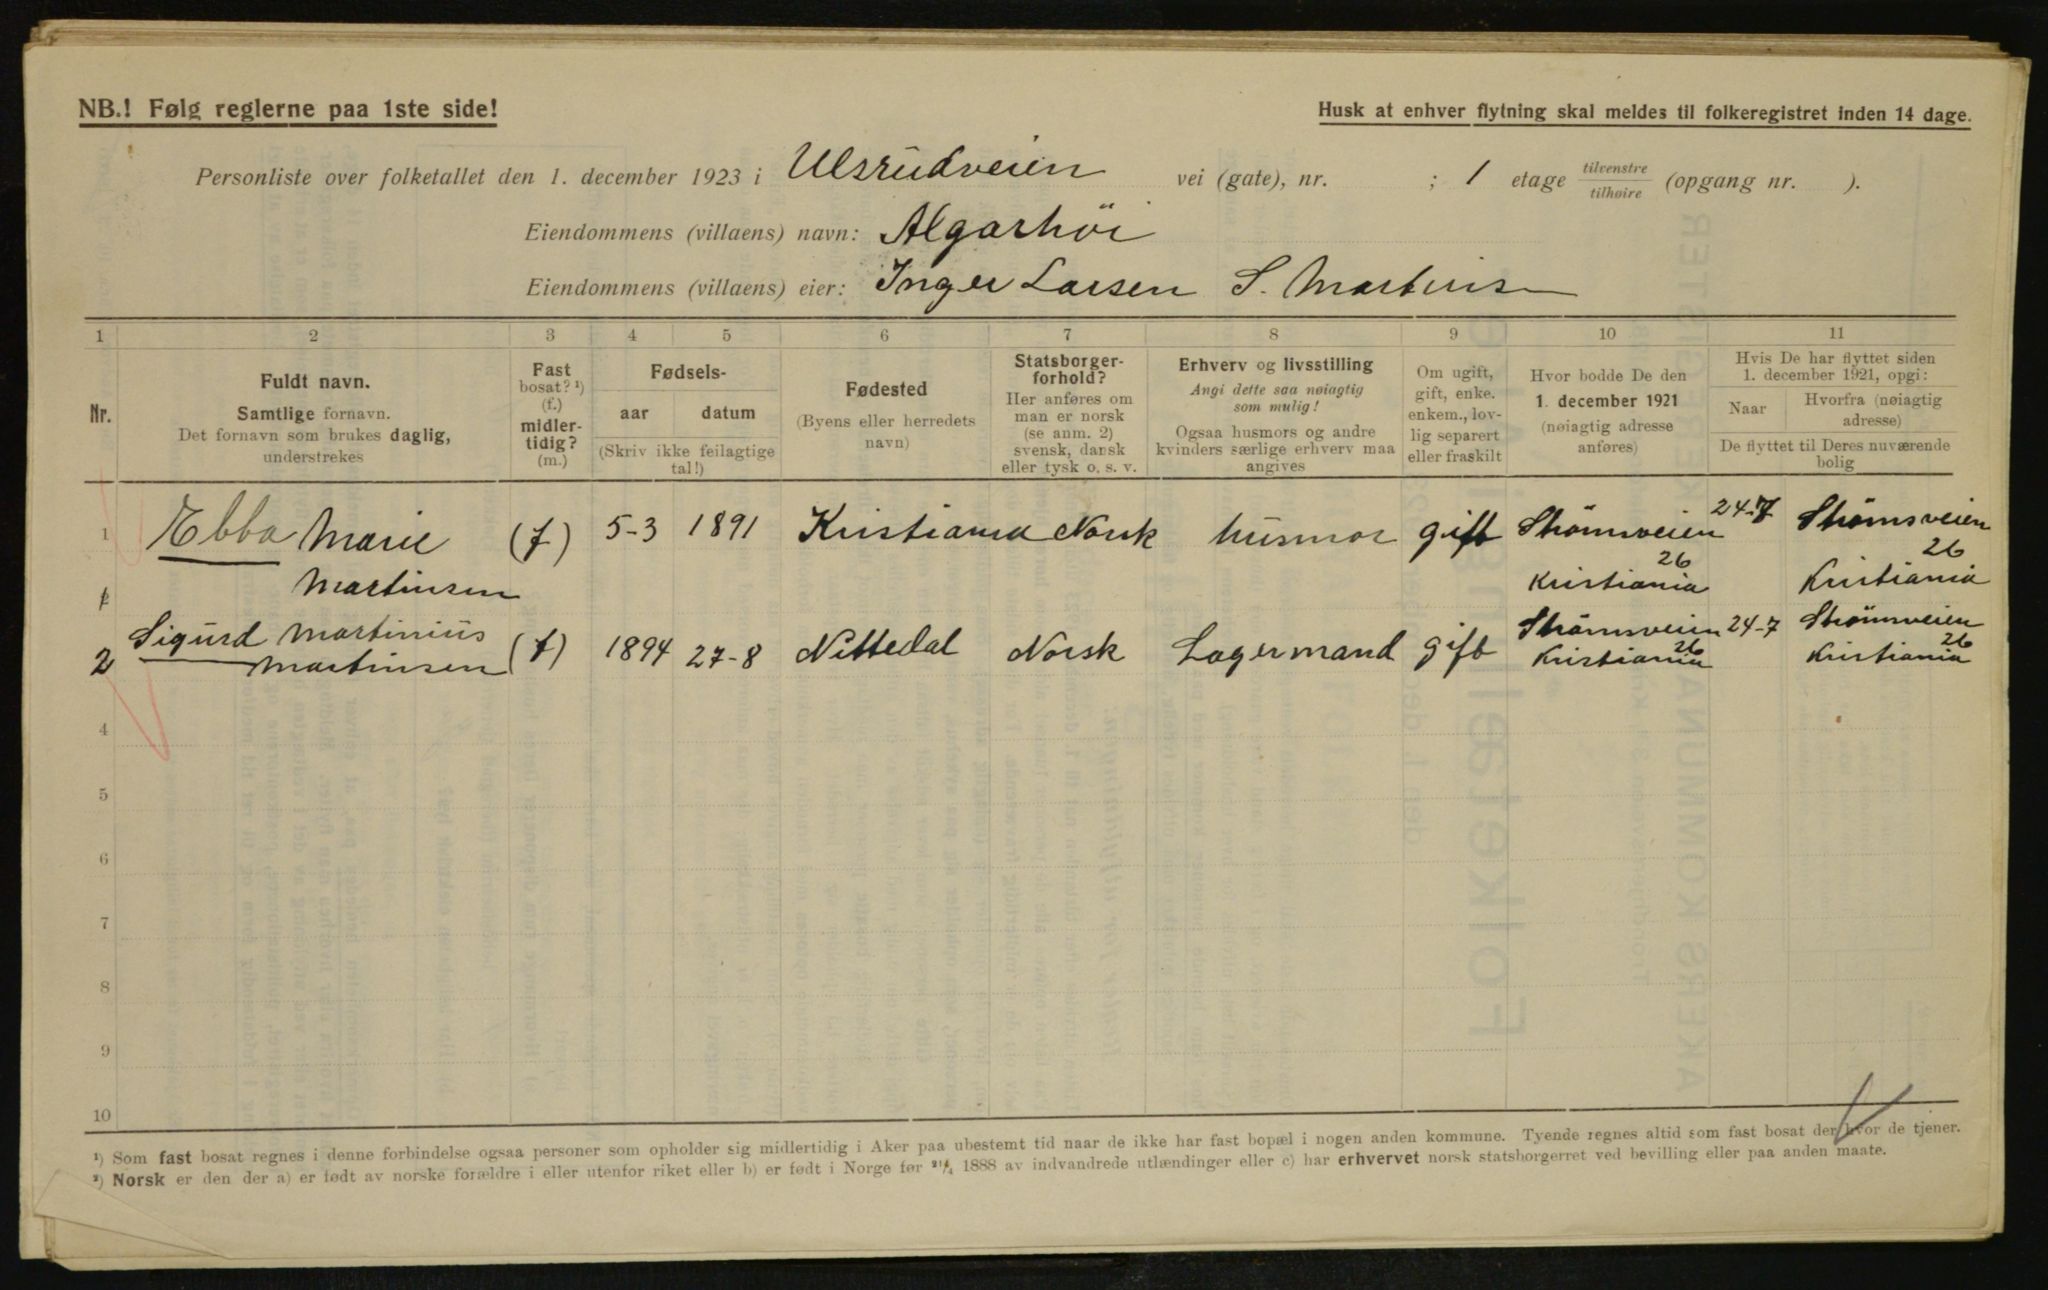 NB.! Følg reglerne paa 1ste side!
Husk at enhver flytning skal meldes til folkeregistret inden 14 dage.
Personliste over folketallet den 1. december 1923 i Ulsrudveien vei (gate), nr. ; 1 etage tilvenstre tilhøire (opgang nr. ).
Eiendommens (villaens) navn: Algarhöi
Eiendommens (villaens) eier: Inger Larsen S. Martins
1 2 3 4 5 6 7 8 9 10 11
Nr.
Fuldt navn.
Samtlige fornavn.
Det fornavn som brukes daglig,
understrekes
Fast
bosat? ¹)
(f.)
midler-
tidig?
(m.)
Fødsels-
aar datum
(Skriv ikke feilagtige
tal!)
Fødested
(Byens eller herredets
navn)
Statsborger-
forhold?
Her anføres om
man er norsk
(se anm. 2)
svensk, dansk
eller tysk o. s. v.
Erhverv og livsstilling
Angi dette saa nøiagtig
som mulig!
Ogsaa husmors og andre
kvinders særlige erhverv maa
angives
Om ugift,
gift, enke.
enkem., lov-
lig separert
eller fraskilt
Hvor bodde De den
1. december 1921
(nøiagtig adresse
anføres)
Hvis De har flyttet siden
1. december 1921, opgi:
Naar
Hvorfra (nøiagtig
adresse)
De flyttet til Deres nuværende
bolig
1 Ebba Marie (f) 5-3 1891 Kristiania Norsk husmor gift Strömsveien 24-7 Strömsveien
26 26
Martinsen Kristiania Kristiania
2 Sigurd Martinius (f) 1894 27-8 Nittedal Norsk Lagermand gift Strömsveien 24-7 Strömsveien
26 26
Martinsen Kristiania Kristiania
4
5
6
7
8
9
10
¹) Som fast bosat regnes i denne forbindelse ogsaa personer som opholder sig midlertidig i Aker paa ubestemt tid naar de ikke har fast bopæl i nogen anden kommune. Tyende regnes altid som fast bosat der hvor de tjener.
²) Norsk er den der a) er født av norske forældre i eller utenfor riket eller b) er født i Norge før 21/4 1888 av indvandrede utlændinger eller c) har erhvervet norsk statsborgerret ved bevilling eller paa anden maate.